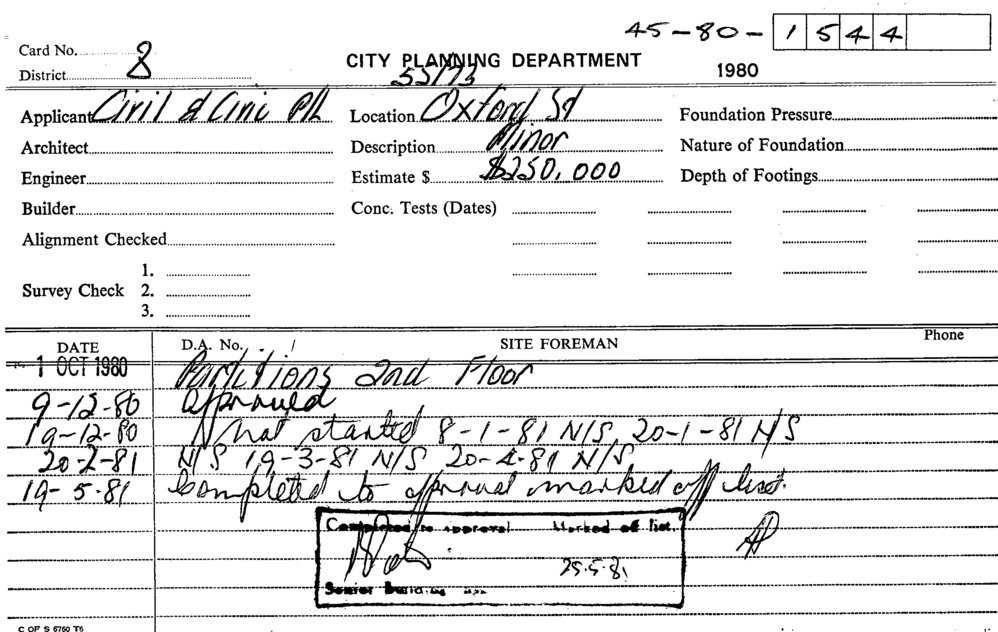 45-80- 1544
Card No. 8
District
CITY PLANNING DEPARTMENT 1980
55/73
Applicant Civil & Civic P/L Location Oxford St Foundation Pressure
Architect Description Minor Nature of Foundation
Engineer Estimate $ $250,000 Depth of Footings
Builder Conc. Tests (Dates)
Alignment Checked
1.
Survey Check 2.
3.
DATE D.A. No. SITE FOREMAN Phone
1 OCT 1980 Partitions 2nd Floor
9-12-80 Approved
19-12-80 Not started 8-1-81 N/S 20-1-81 N/S
20-2-81 N/S 19-3-81 N/S 20-4-81 N/S
19-5-81 Completed to approval marked off list.
Completed to approval Marked off list.
25-5-81
Senior Building
C OF S 6760 T6